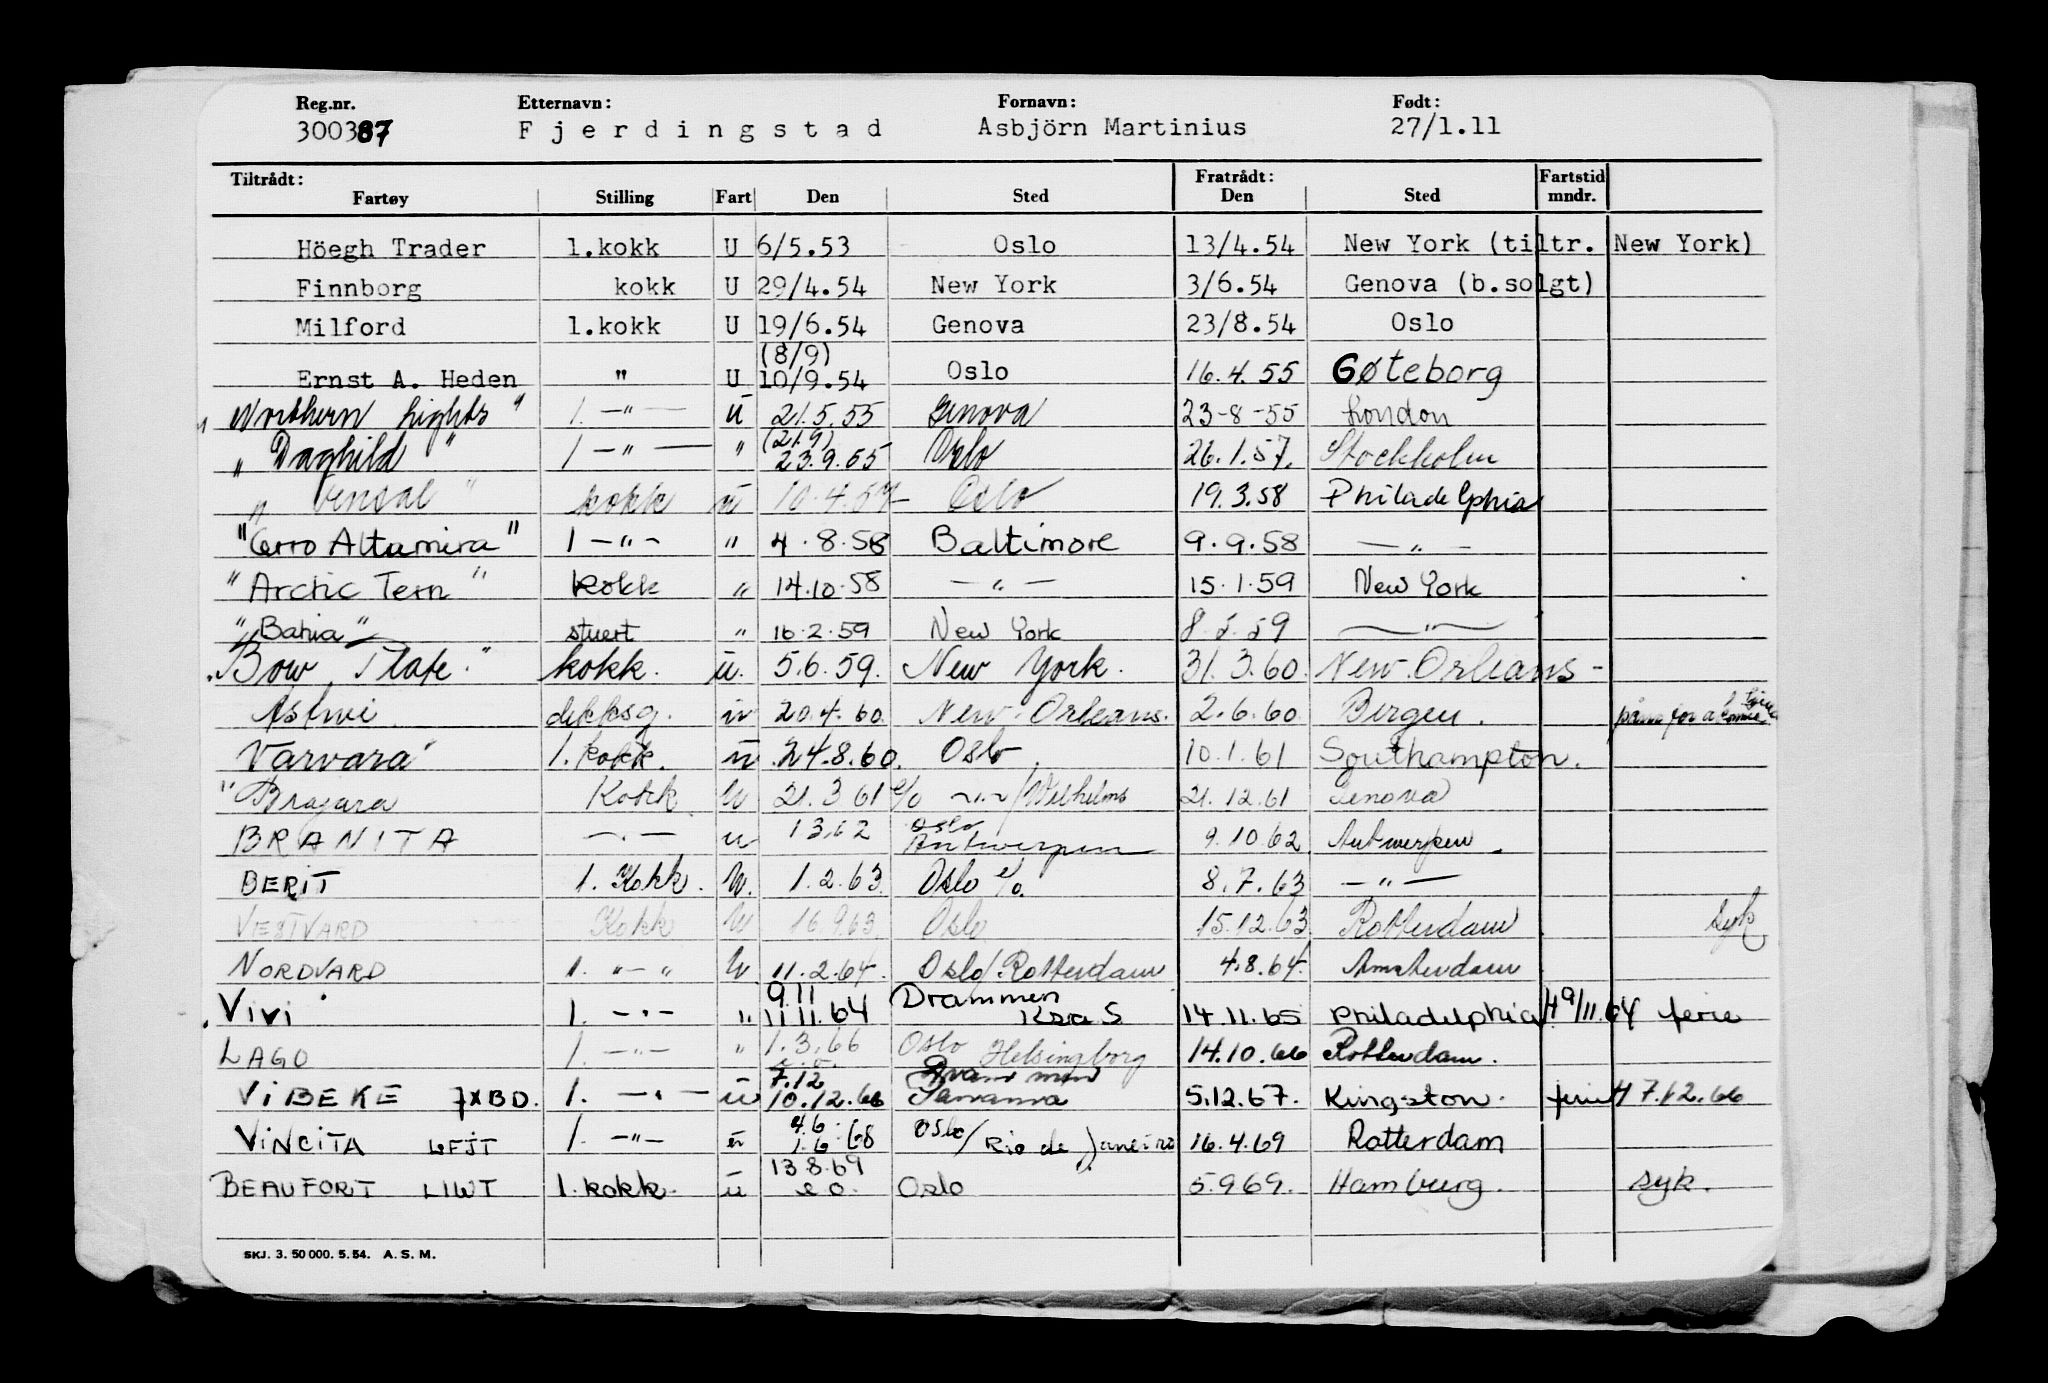 Reg.nr. Etternavn: Fornavn: Født:
300387 Fjerdingstad Asbjörn Martinius 27/1.11
Tiltrådt: Fratrådt: Fartstid
Fartøy Stilling Fart Den Sted Den Sted mndr.
Höegh Trader 1.kokk U 6/5.53 Oslo 13/4.54 New York (tiltr. New York)
Finnborg kokk U 29/4.54 New York 3/6.54 Genova (b.solgt)
Milford 1.kokk U 19/6.54 Genova 23/8.54 Oslo
(8/9)
Ernst A. Heden " U 10/9.54 Oslo 16.4.55 Gøteborg
Northern Lights" 1. —"— ü 21.5.55 Genova 23-8-55 London
(21.9)
"Daghild" 1 —"— " 23.9.55 Oslo 26.1.57. Stockholm
" Vensal " kokk ü 10.4.57 Oslo 19.3.58 Philadelphia
"Cerro Altamira" 1 —"— " 4.8.58 Baltimore 9.9.58 —"—
"Arctic Tern" kokk " 14.10.58 —"— 15.1.59 New York
"Bahia" stuert " 16.2.59 New York 8.5.59 —"—
"Bow Plate." kokk. ü. 5.6.59. New York. 31.3.60. New-Orleans-
dekksg. 20.4.60. New-Orleans. 2.6.60. Bergen.
Varvara" 1. kokk. ü 24.8.60. Oslo. 10.1.61 Southampton.
"Bragara Kokk U 21.3.61 e/o —"—/Wilhelms 21.12.61 Genova
BRANITA —.— u 1362 Oslo Antwerpen 9.10.62 Antwerpen.
BERIT 1. Kokk. U. 1.2.63. Oslo e/o. 8.7.63 —"—
VESTVARD Kokk U 16.9.63. Oslo 15.12.63 Rotterdam syk
NORDVARD 1. "—" U 11.2.64. Oslo/Rotterdam 4.8.64. Amsterdam
9.11 Drammen
VIVI 1. —.— " 11.11.64 14.11.65 Philadelphia H 9/11.64 ferie
LAGO 1. —"— " 1.3.66 Oslo Helsingborg 14.10.66 Rotterdam.
7.12 Drammen
VIBEKE JXBD. 1. —.— ü 10.12.66 Panama 5.12.67. Kingston. ferie H 7.12.66
4.6
VINCITA LFJT 1. —"— ü 1.6.68 Oslo/Rio de Janeiro 16.4.69 Rotterdam
13.8.69
BEAUFORT LIWT 1. kokk. ü e o. Oslo 5.969. Hamburg. syk.
SKJ. 3. 50 000. 5. 54. A. S. M.